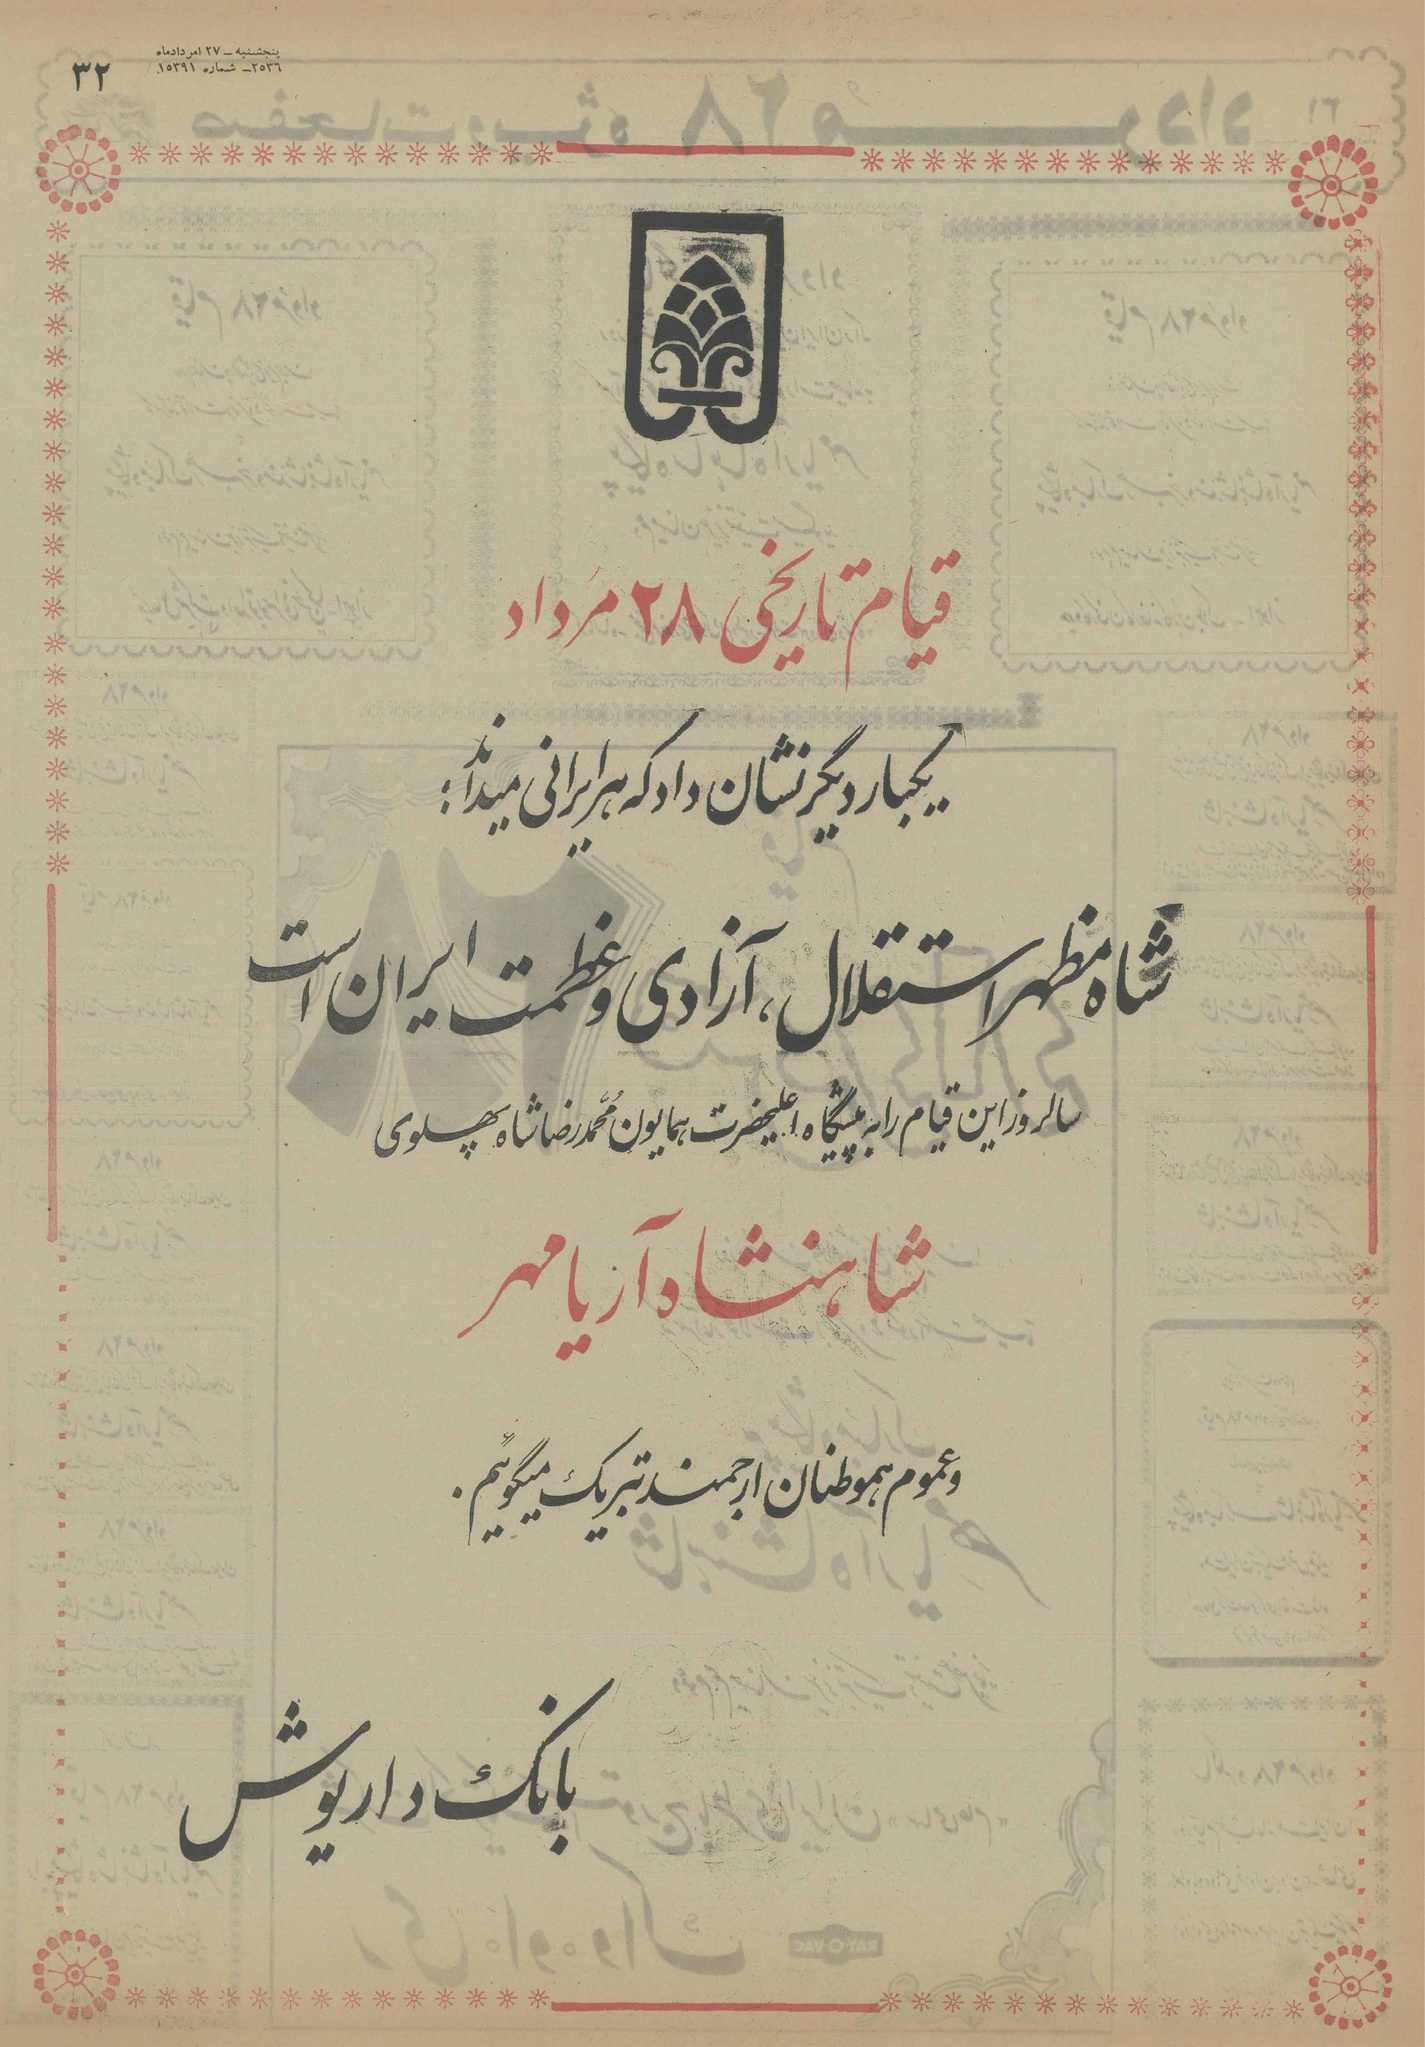 پنجشنبه ـ ۲۷ امردادماه
۲۵۳۶ـ شماره ۱۵۳۹۱
۳۲
قیام تاریخی ۲۸ مرداد
یکبار دیگر نشان داد که هر ایرانی میداند:
شاه مظهر استقلال، آزادی و عظمت ایران است
سالروز این قیام را به پیشگاه اعلیحضرت همایون محمدرضا شاه پهلوی
شاهنشاه آریامهر
و عموم هموطنان ارجمند تبریک میگوئیم.
بانک داریوش